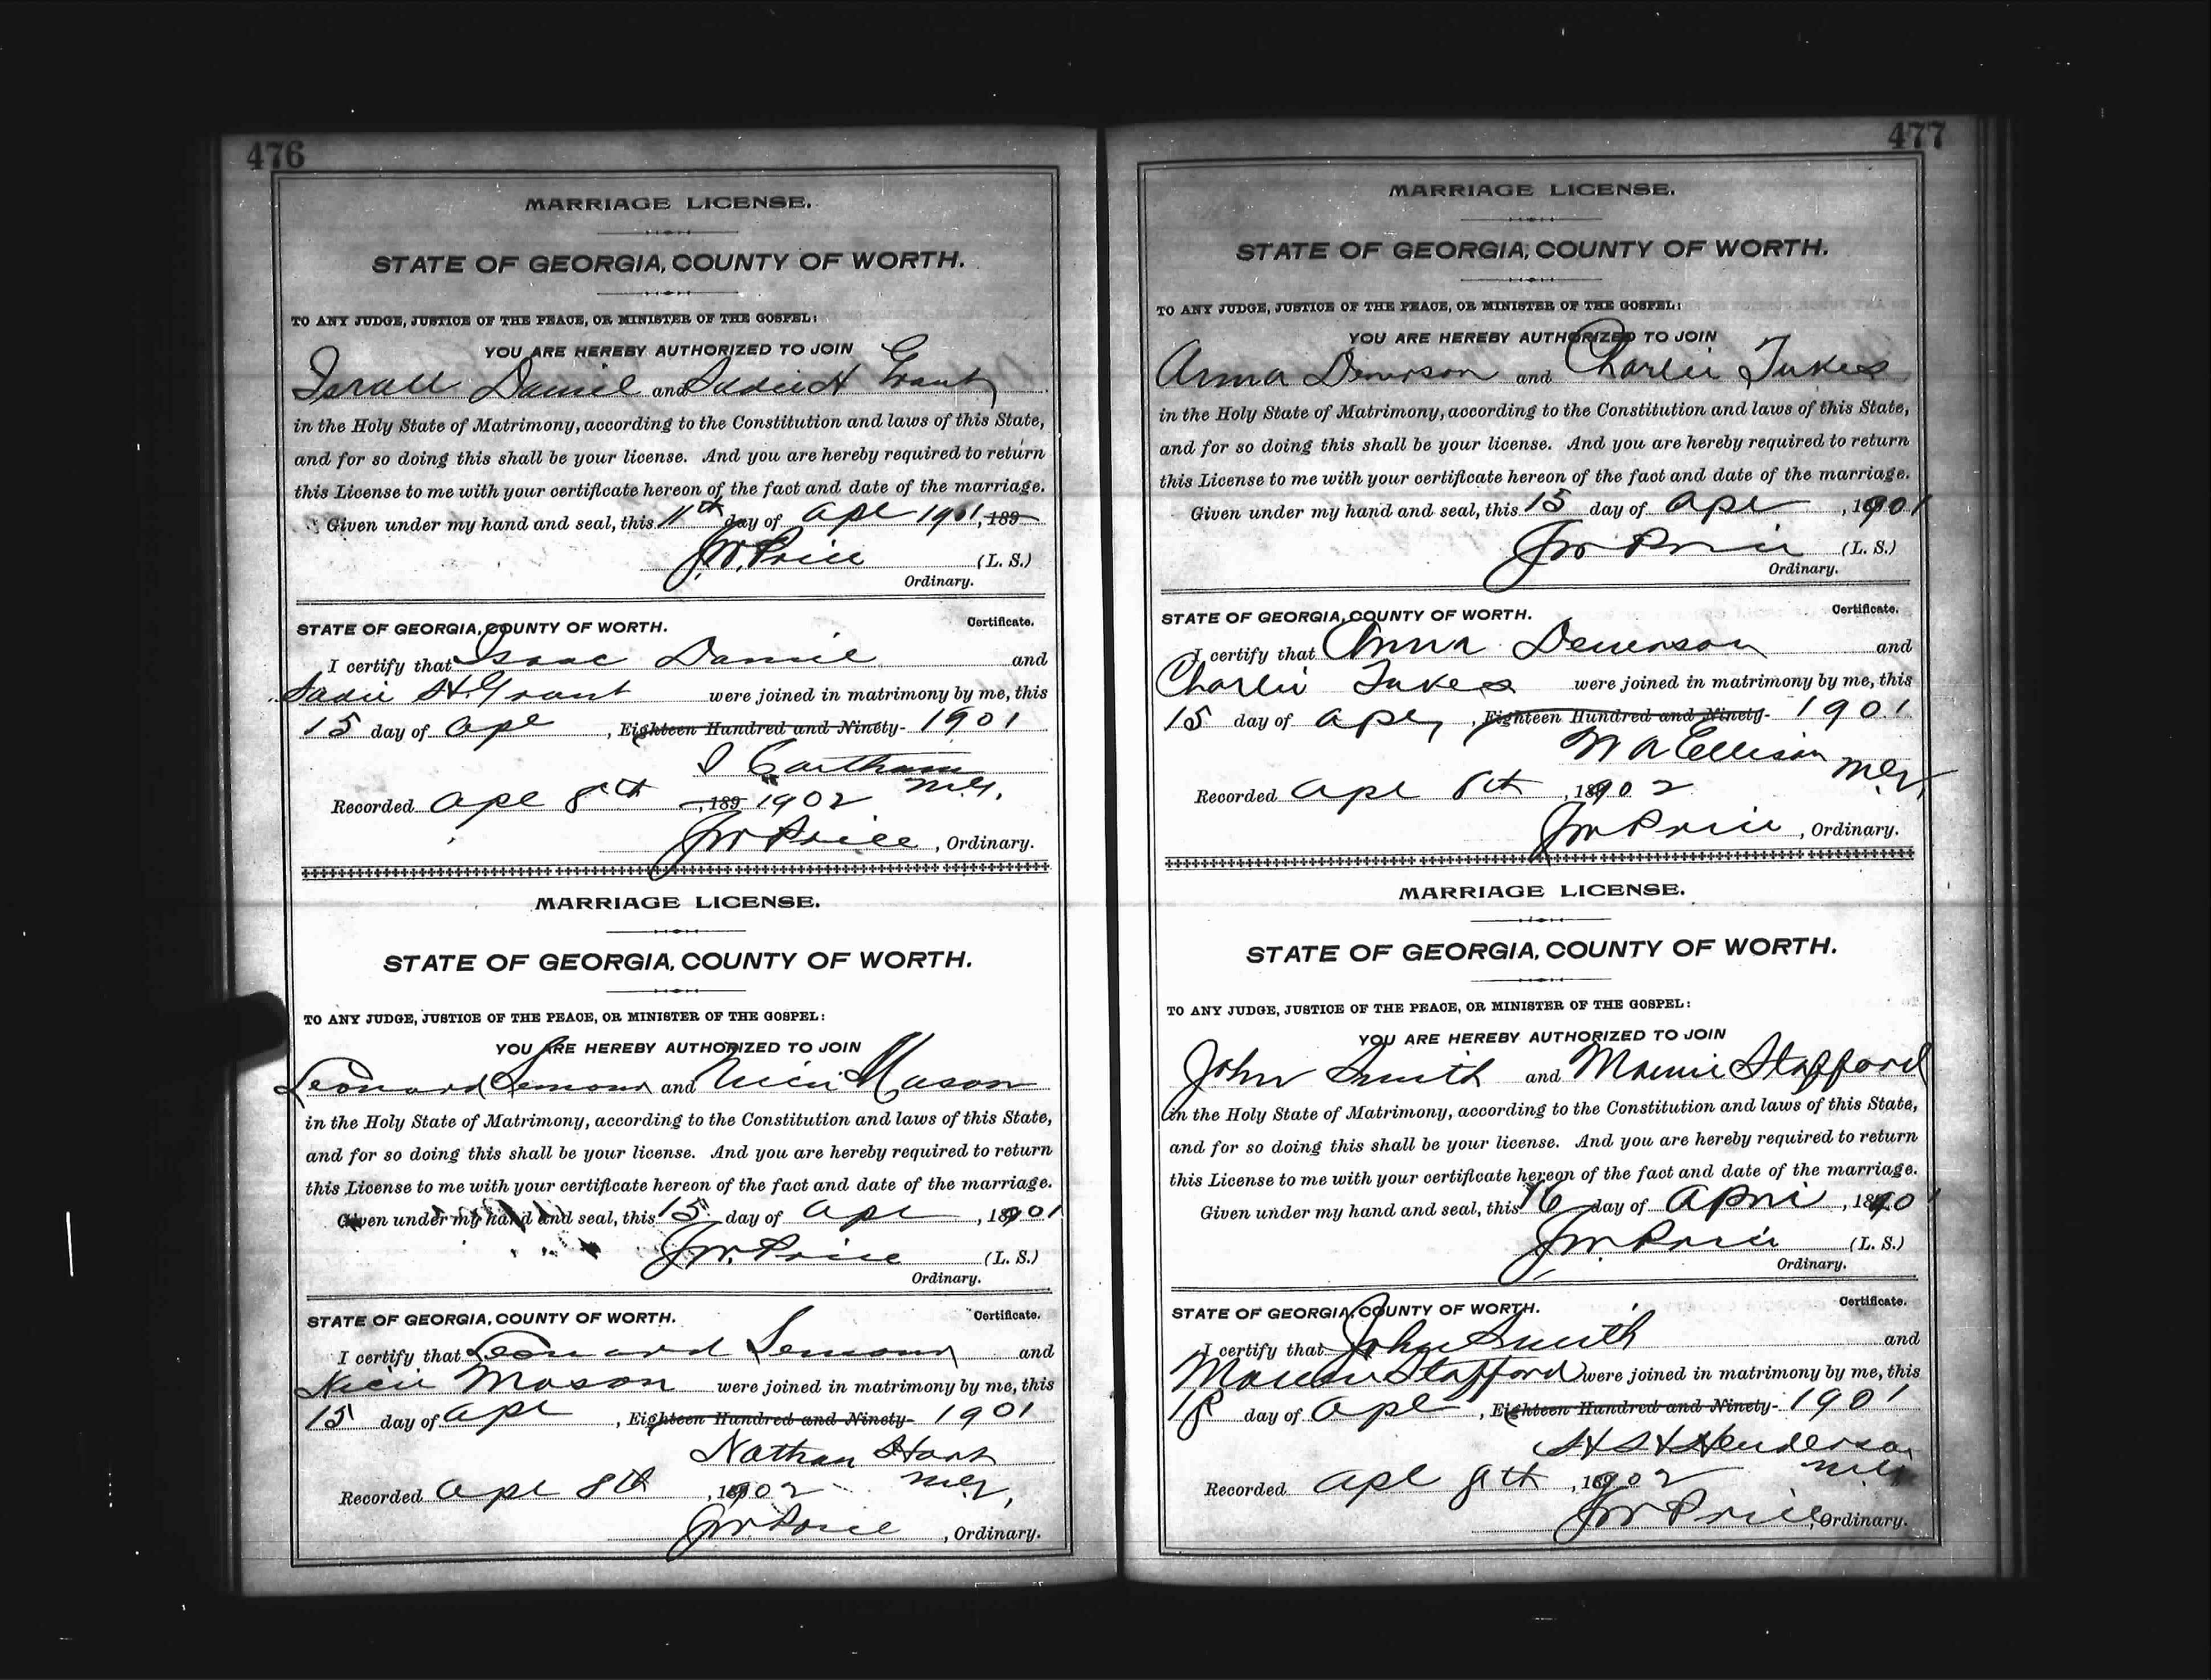 476
MARRIAGE LICENSE.
STATE OF GEORGIA, COUNTY OF WORTH.
TO ANY JUDGE, JUSTICE OF THE PEACE, OR MINISTER OF THE GOSPEL:
YOU ARE HEREBY AUTHORIZED TO JOIN
Israll Daniel and Sadie H Grant
in the Holy State of Matrimony, according to the Constitution and laws of this State,
and for so doing this shall be your license. And you are hereby required to return
this License to me with your certificate hereon of the fact and date of the marriage.
Given under my hand and seal, this 11th day of Apl 1901, 189
J.W. Price (L. S.)
Ordinary.
STATE OF GEORGIA, COUNTY OF WORTH. Certificate.
I certify that Isaac Daniel and
Sadie H. Grant were joined in matrimony by me, this
15 day of Apl, Eighteen Hundred and Ninety- 1901
M.G.
Recorded Apl 8th, 189 1902
JW Price, Ordinary.
MARRIAGE LICENSE.
STATE OF GEORGIA, COUNTY OF WORTH.
TO ANY JUDGE, JUSTICE OF THE PEACE, OR MINISTER OF THE GOSPEL:
YOU ARE HEREBY AUTHORIZED TO JOIN
Leonard Semour and Nicie Mason
in the Holy State of Matrimony, according to the Constitution and laws of this State,
and for so doing this shall be your license. And you are hereby required to return
this License to me with your certificate hereon of the fact and date of the marriage.
Given under my hand and seal, this 15 day of Apl, 1901
J.W. Price (L. S.)
Ordinary.
STATE OF GEORGIA, COUNTY OF WORTH. Certificate.
I certify that Leonard Semour and
Nicie Mason were joined in matrimony by me, this
15 day of Apl, Eighteen Hundred and Ninety- 1901
Nathan Hart
M.G.
Recorded Apl 8th, 1902
JW Price, Ordinary.
477
MARRIAGE LICENSE.
STATE OF GEORGIA, COUNTY OF WORTH.
TO ANY JUDGE, JUSTICE OF THE PEACE, OR MINISTER OF THE GOSPEL:
YOU ARE HEREBY AUTHORIZED TO JOIN
Anna Denerson and Charlie Tukes
in the Holy State of Matrimony, according to the Constitution and laws of this State,
and for so doing this shall be your license. And you are hereby required to return
this License to me with your certificate hereon of the fact and date of the marriage.
Given under my hand and seal, this 15 day of Apl, 1901
JW Price (L. S.)
Ordinary.
STATE OF GEORGIA, COUNTY OF WORTH. Certificate.
I certify that Anna Denerson and
Charlie Tukes were joined in matrimony by me, this
15 day of Apl, Eighteen Hundred and Ninety- 1901
W A Ellison
M.G.
Recorded Apl 8th, 1902
JW Price, Ordinary.
MARRIAGE LICENSE.
STATE OF GEORGIA, COUNTY OF WORTH.
TO ANY JUDGE, JUSTICE OF THE PEACE, OR MINISTER OF THE GOSPEL:
YOU ARE HEREBY AUTHORIZED TO JOIN
John Smith and Mamie Stafford
in the Holy State of Matrimony, according to the Constitution and laws of this State,
and for so doing this shall be your license. And you are hereby required to return
this License to me with your certificate hereon of the fact and date of the marriage.
Given under my hand and seal, this 16 day of April, 1901
JW. Price (L. S.)
Ordinary.
STATE OF GEORGIA, COUNTY OF WORTH. Certificate.
I certify that John Smith and
Mamie Stafford were joined in matrimony by me, this
18 day of Apl, Eighteen Hundred and Ninety- 1901
Henderson
M.G.
Recorded Apl 8th, 1902
JW Price, Ordinary.